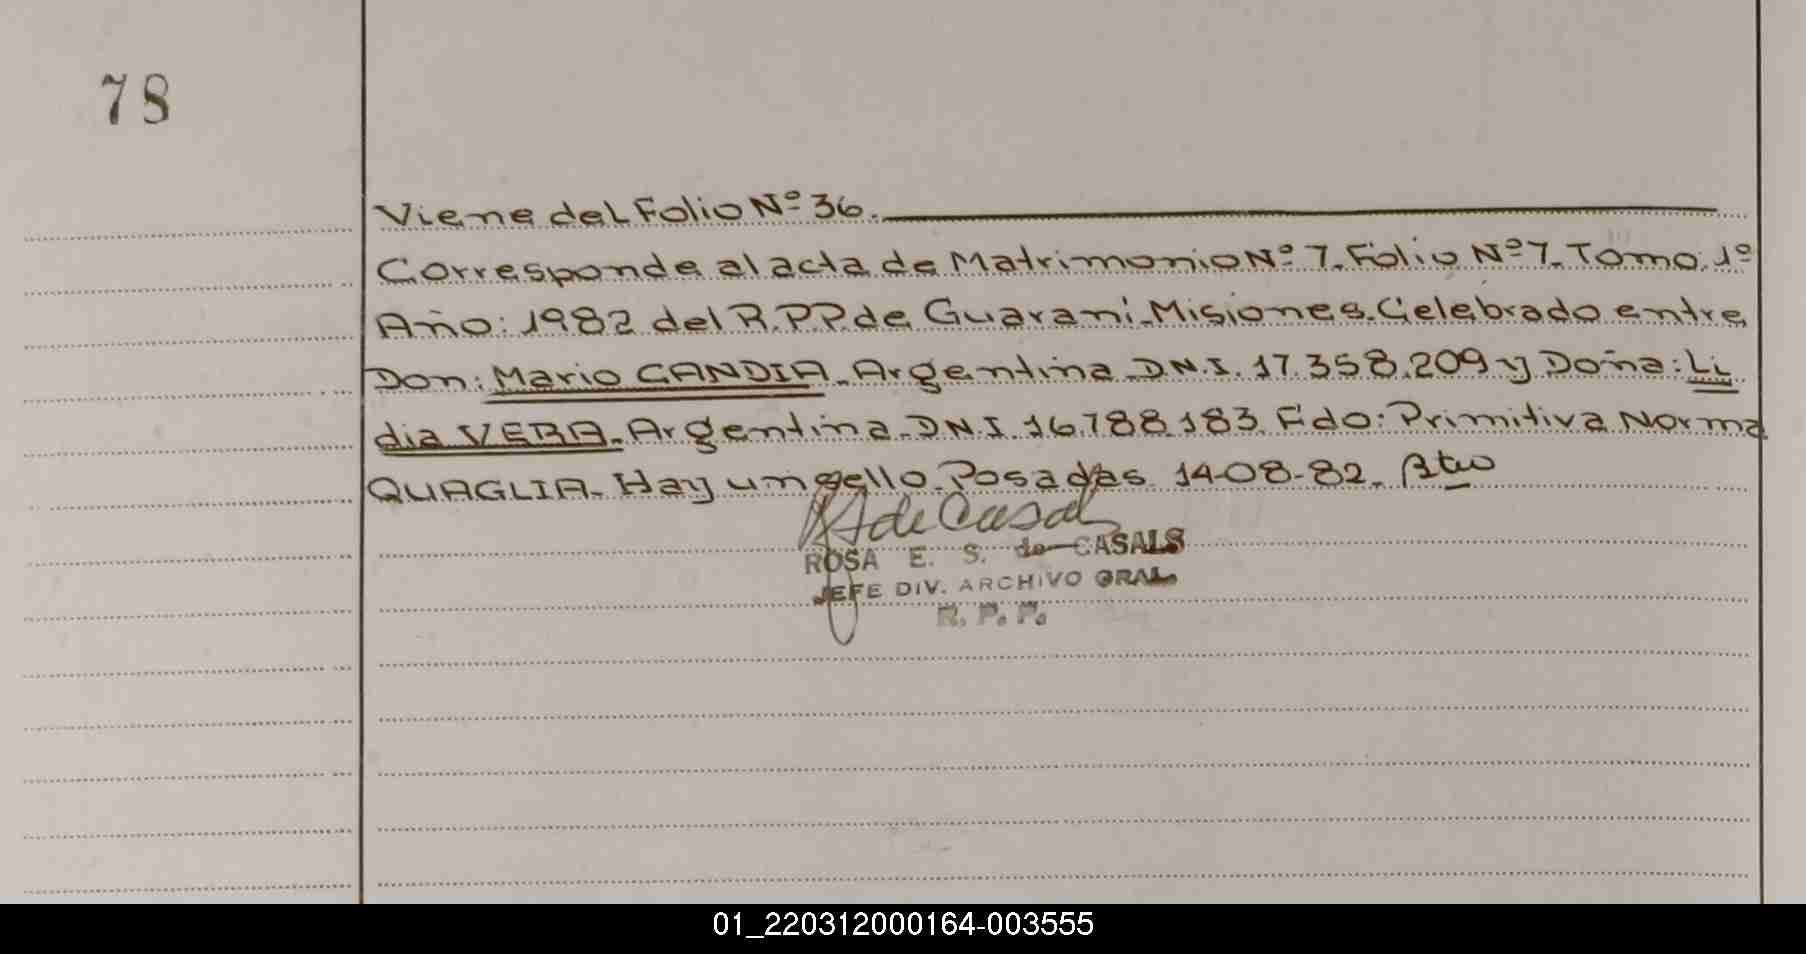 78
Viene del Folio Nº 36.
Corresponde al acta de Matrimonio Nº 7. Folio Nº 7. Tomo. 1º
Año: 1982 del R.P.P. de Guaraní. Misiones. Celebrado entre
Don: Mario CANDIA. Argentina. D.N.I. 17.358.209 y Doña: Li
dia VERA. Argentina. D.N.I. 16.788.183. Fdo: Primitiva Norma
QUAGLIA. Hay un sello. Posadas. 14-08-82.
de Casals
ROSA E. S. de CASALS
JEFE DIV. ARCHIVO GRAL.
R. P. P.
01_220312000164-003555